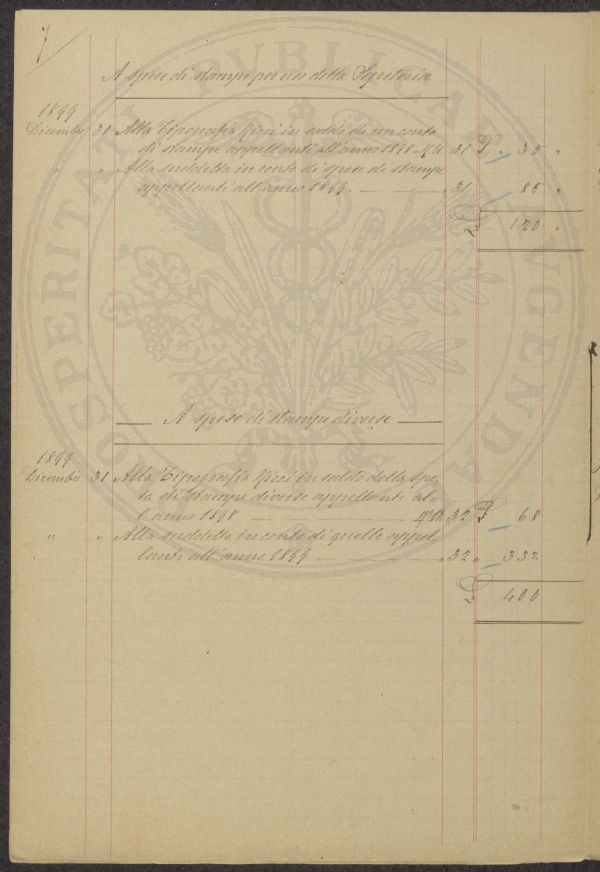 7
A spese di stampe per uso della Segreteria
1899
Dicembre 31 Alla Tipografia Ricci in saldo di un conto
di stampe appellanti all'anno 1898 31 £ 35 "
" " Alla suddetta in conto di spese di stampe
appellanti all'anno 1899 " 31 " 85 "
£ 120 "
A spese di stampe diverse
1899
Dicembre 31 Alla Tipografia Ricci in saldo della spe-
sa di stampe diverse appellanti al-
l'anno 1898 32 £ 68
" " Alla suddetta in conto di quelle appel-
lanti all'anno 1899 " 32 " 332
£ 400
PROSPERITATI PVBLICAE AVGENDAE